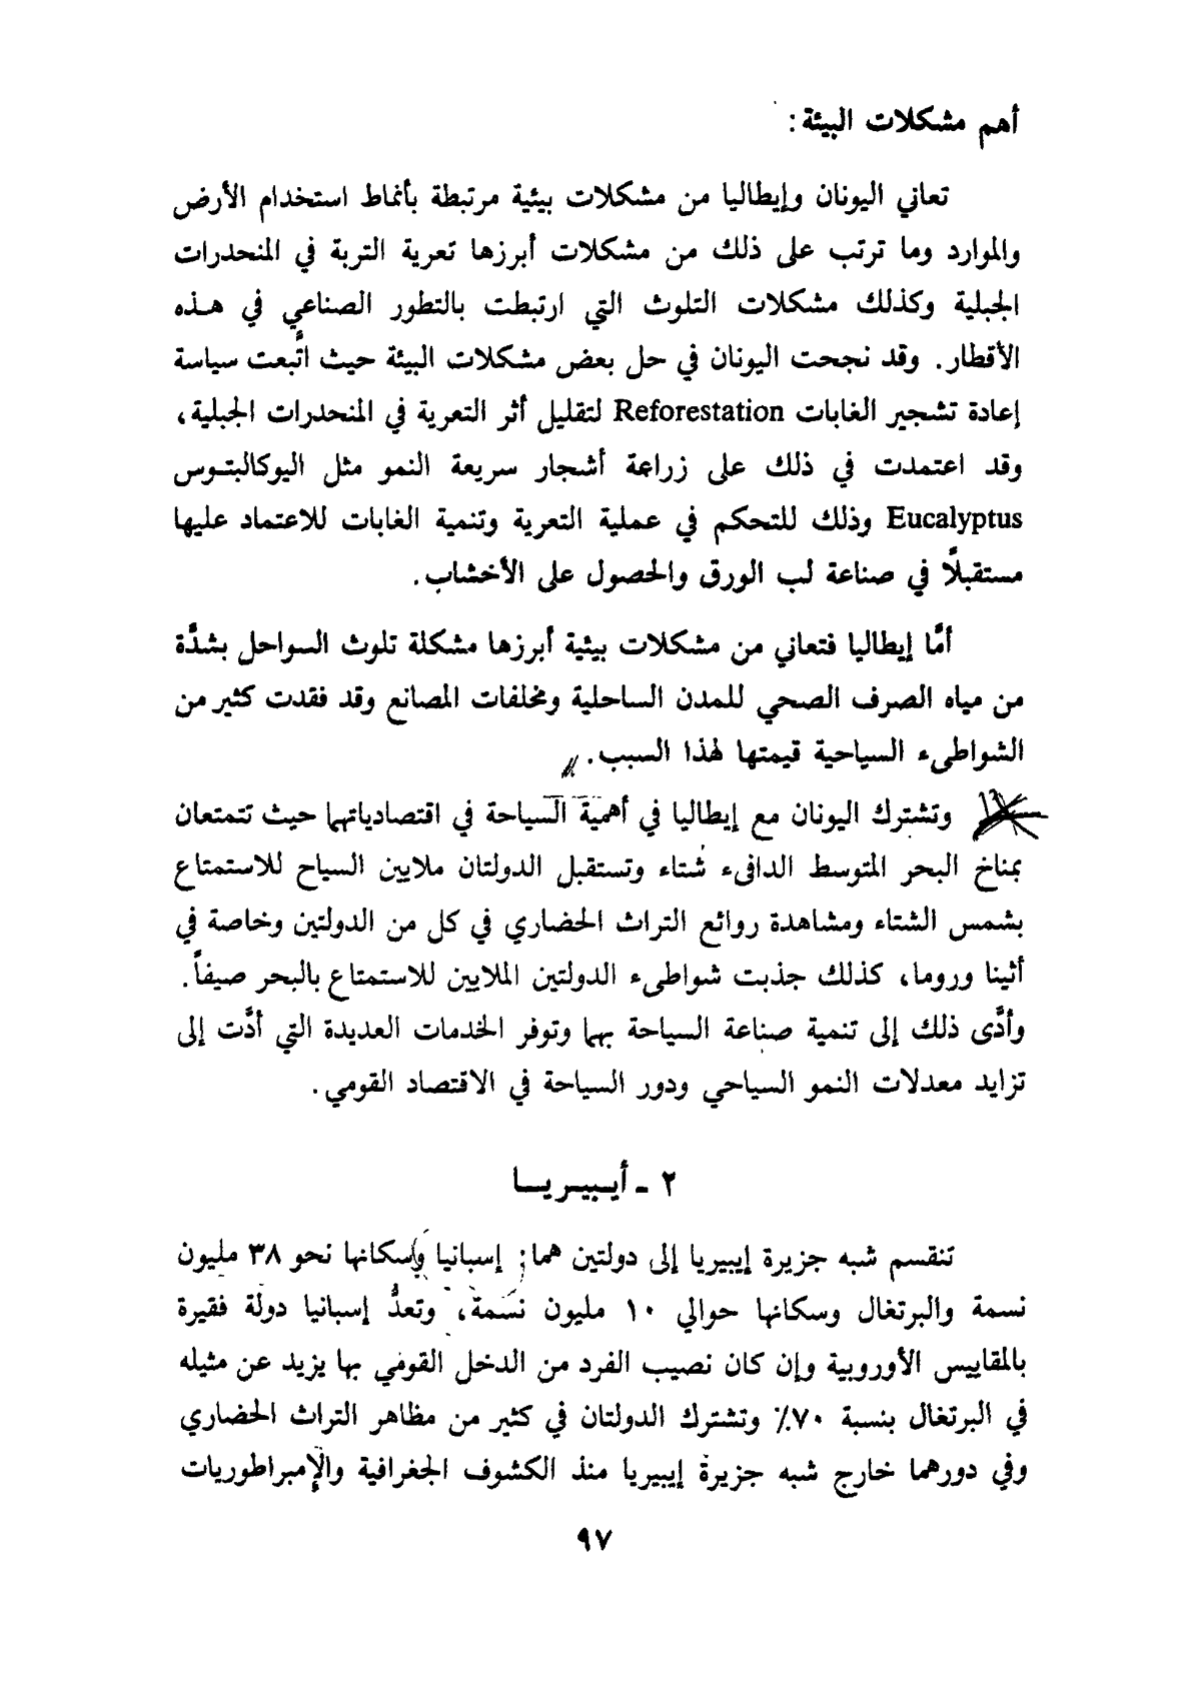 أهم مشكلات البيئة:
تعاني اليونان وإيطاليا من مشكلات بيئية مرتبطة بأنماط استخدام الأرض
والموارد وما ترتب على ذلك من مشكلات أبرزها تعرية التربة في المنحدرات
الجبلية وكذلك مشكلات التلوث التي ارتبطت بالتطور الصناعي في هذه
الأقطار. وقد نجحت اليونان في حل بعض مشكلات البيئة حيث اتَّبعت سياسة
إعادة تشجير الغابات Reforestation لتقليل أثر التعرية في المنحدرات الجبلية،
وقد اعتمدت في ذلك على زراعة أشجار سريعة النمو مثل اليوكالبتوس
Eucalyptus وذلك للتحكم في عملية التعرية وتنمية الغابات للاعتماد عليها
مستقبلاً في صناعة لب الورق والحصول على الأخشاب.
أمَّا إيطاليا فتعاني من مشكلات بيئية أبرزها مشكلة تلوث السواحل بشدَّة
من مياه الصرف الصحي للمدن الساحلية ومخلفات المصانع وقد فقدت كثير من
الشواطىء السياحية قيمتها لهذا السبب.
وتشترك اليونان مع إيطاليا في أهمية السياحة في اقتصادياتهما حيث تتمتعان
بمناخ البحر المتوسط الدافىء شتاء وتستقبل الدولتان ملايين السياح للاستمتاع
بشمس الشتاء ومشاهدة روائع التراث الحضاري في كل من الدولتين وخاصة في
أثينا وروما، كذلك جذبت شواطىء الدولتين الملايين للاستمتاع بالبحر صيفاً.
وأدَّى ذلك إلى تنمية صناعة السياحة بهما وتوفر الخدمات العديدة التي أدَّت إلى
تزايد معدلات النمو السياحي ودور السياحة في الاقتصاد القومي.
٢ - أيبيريا
تنقسم شبه جزيرة إيبيريا إلى دولتين هما: إسبانيا وسكانها نحو ٣٨ مليون
نسمة والبرتغال وسكانها حوالي ١٠ مليون نسمة، وتعدُّ إسبانيا دولة فقيرة
بالمقاييس الأوروبية وإن كان نصيب الفرد من الدخل القومي بها يزيد عن مثيله
في البرتغال بنسبة ٧٠٪ وتشترك الدولتان في كثير من مظاهر التراث الحضاري
وفي دورهما خارج شبه جزيرة إيبيريا منذ الكشوف الجغرافية والإمبراطوريات
٩٧